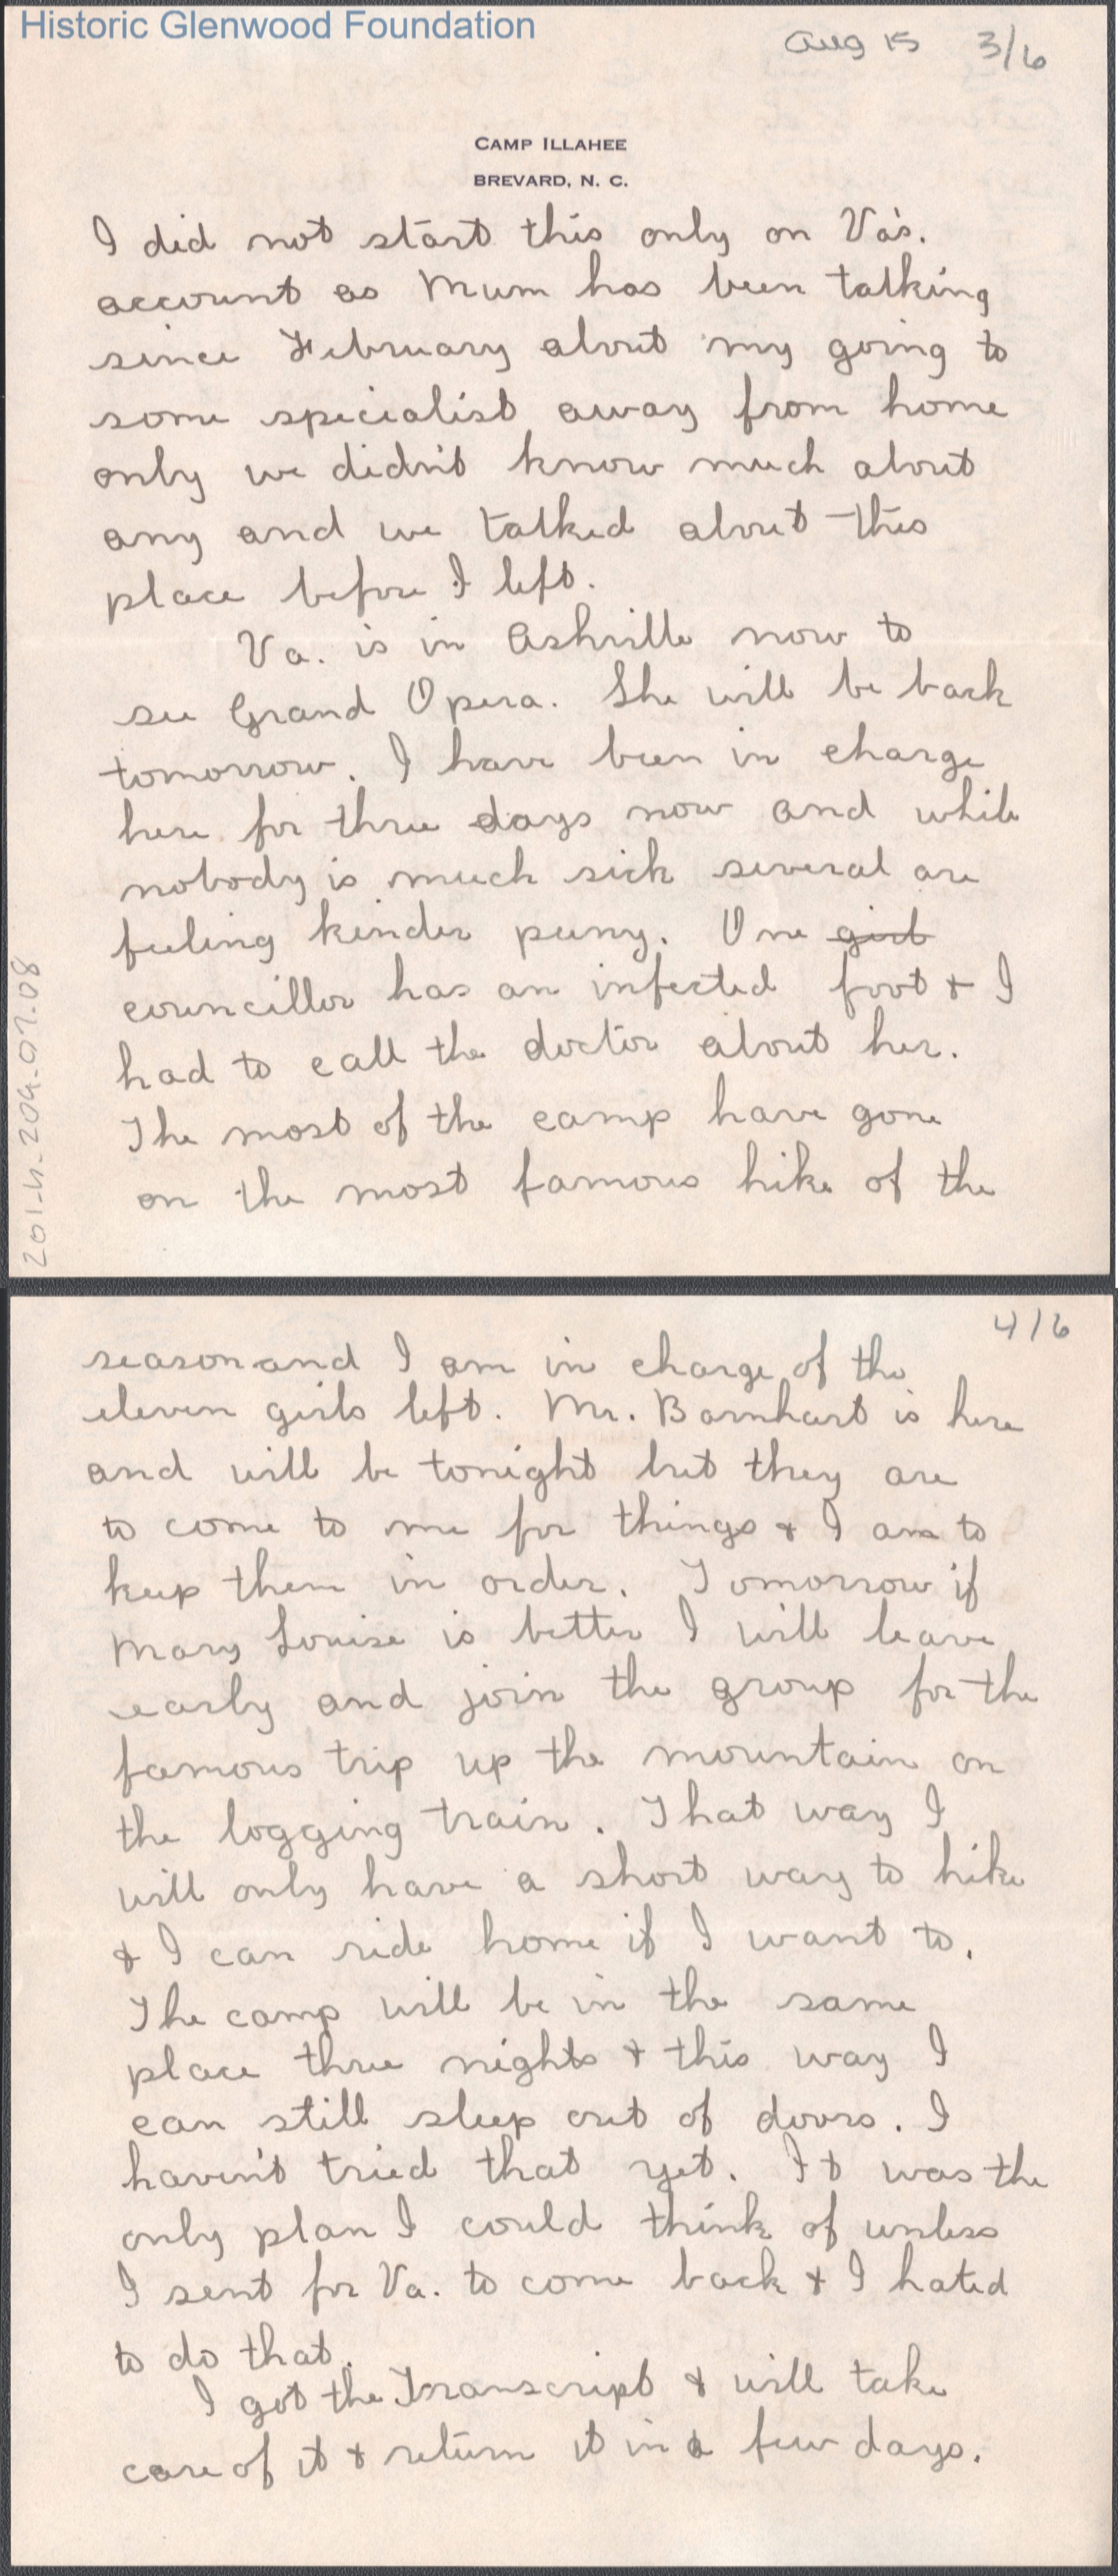 Historic Glenwood Foundation
Aug 15 3/6
CAMP ILLAHEE
BREVARD, N. C.
I did not start this only on Va's.
account as Mum has been talking
since February about my going to
some specialist away from home
only we didn't know much about
any and we talked about this
place before I left.
Va. is in Ashville now to
see Grand Opera. She will be back
tomorrow. I have been in charge
here for three days now and while
nobody is much sick several are
feeling kinder puny. One girl
councillor has an infected foot & I
had to call the doctor about her.
The most of the camp have gone
on the most famous hike of the
201-H-204.07.08
4/6
season and I am in charge of the
eleven girls left. Mr. Barnhart is here
and will be tonight but they are
to come to me for things & I am to
keep them in order. Tomorrow if
Mary Louise is better I will leave
early and join the group for the
famous trip up the mountain on
the logging train. That way I
will only have a short way to hike
& I can ride home if I want to.
The camp will be in the same
place three nights & this way I
can still sleep out of doors. I
haven't tried that yet. It was the
only plan I could think of unless
I sent for Va. to come back & I hated
to do that.
I got the Transcript & will take
care of it & return it in a few days.